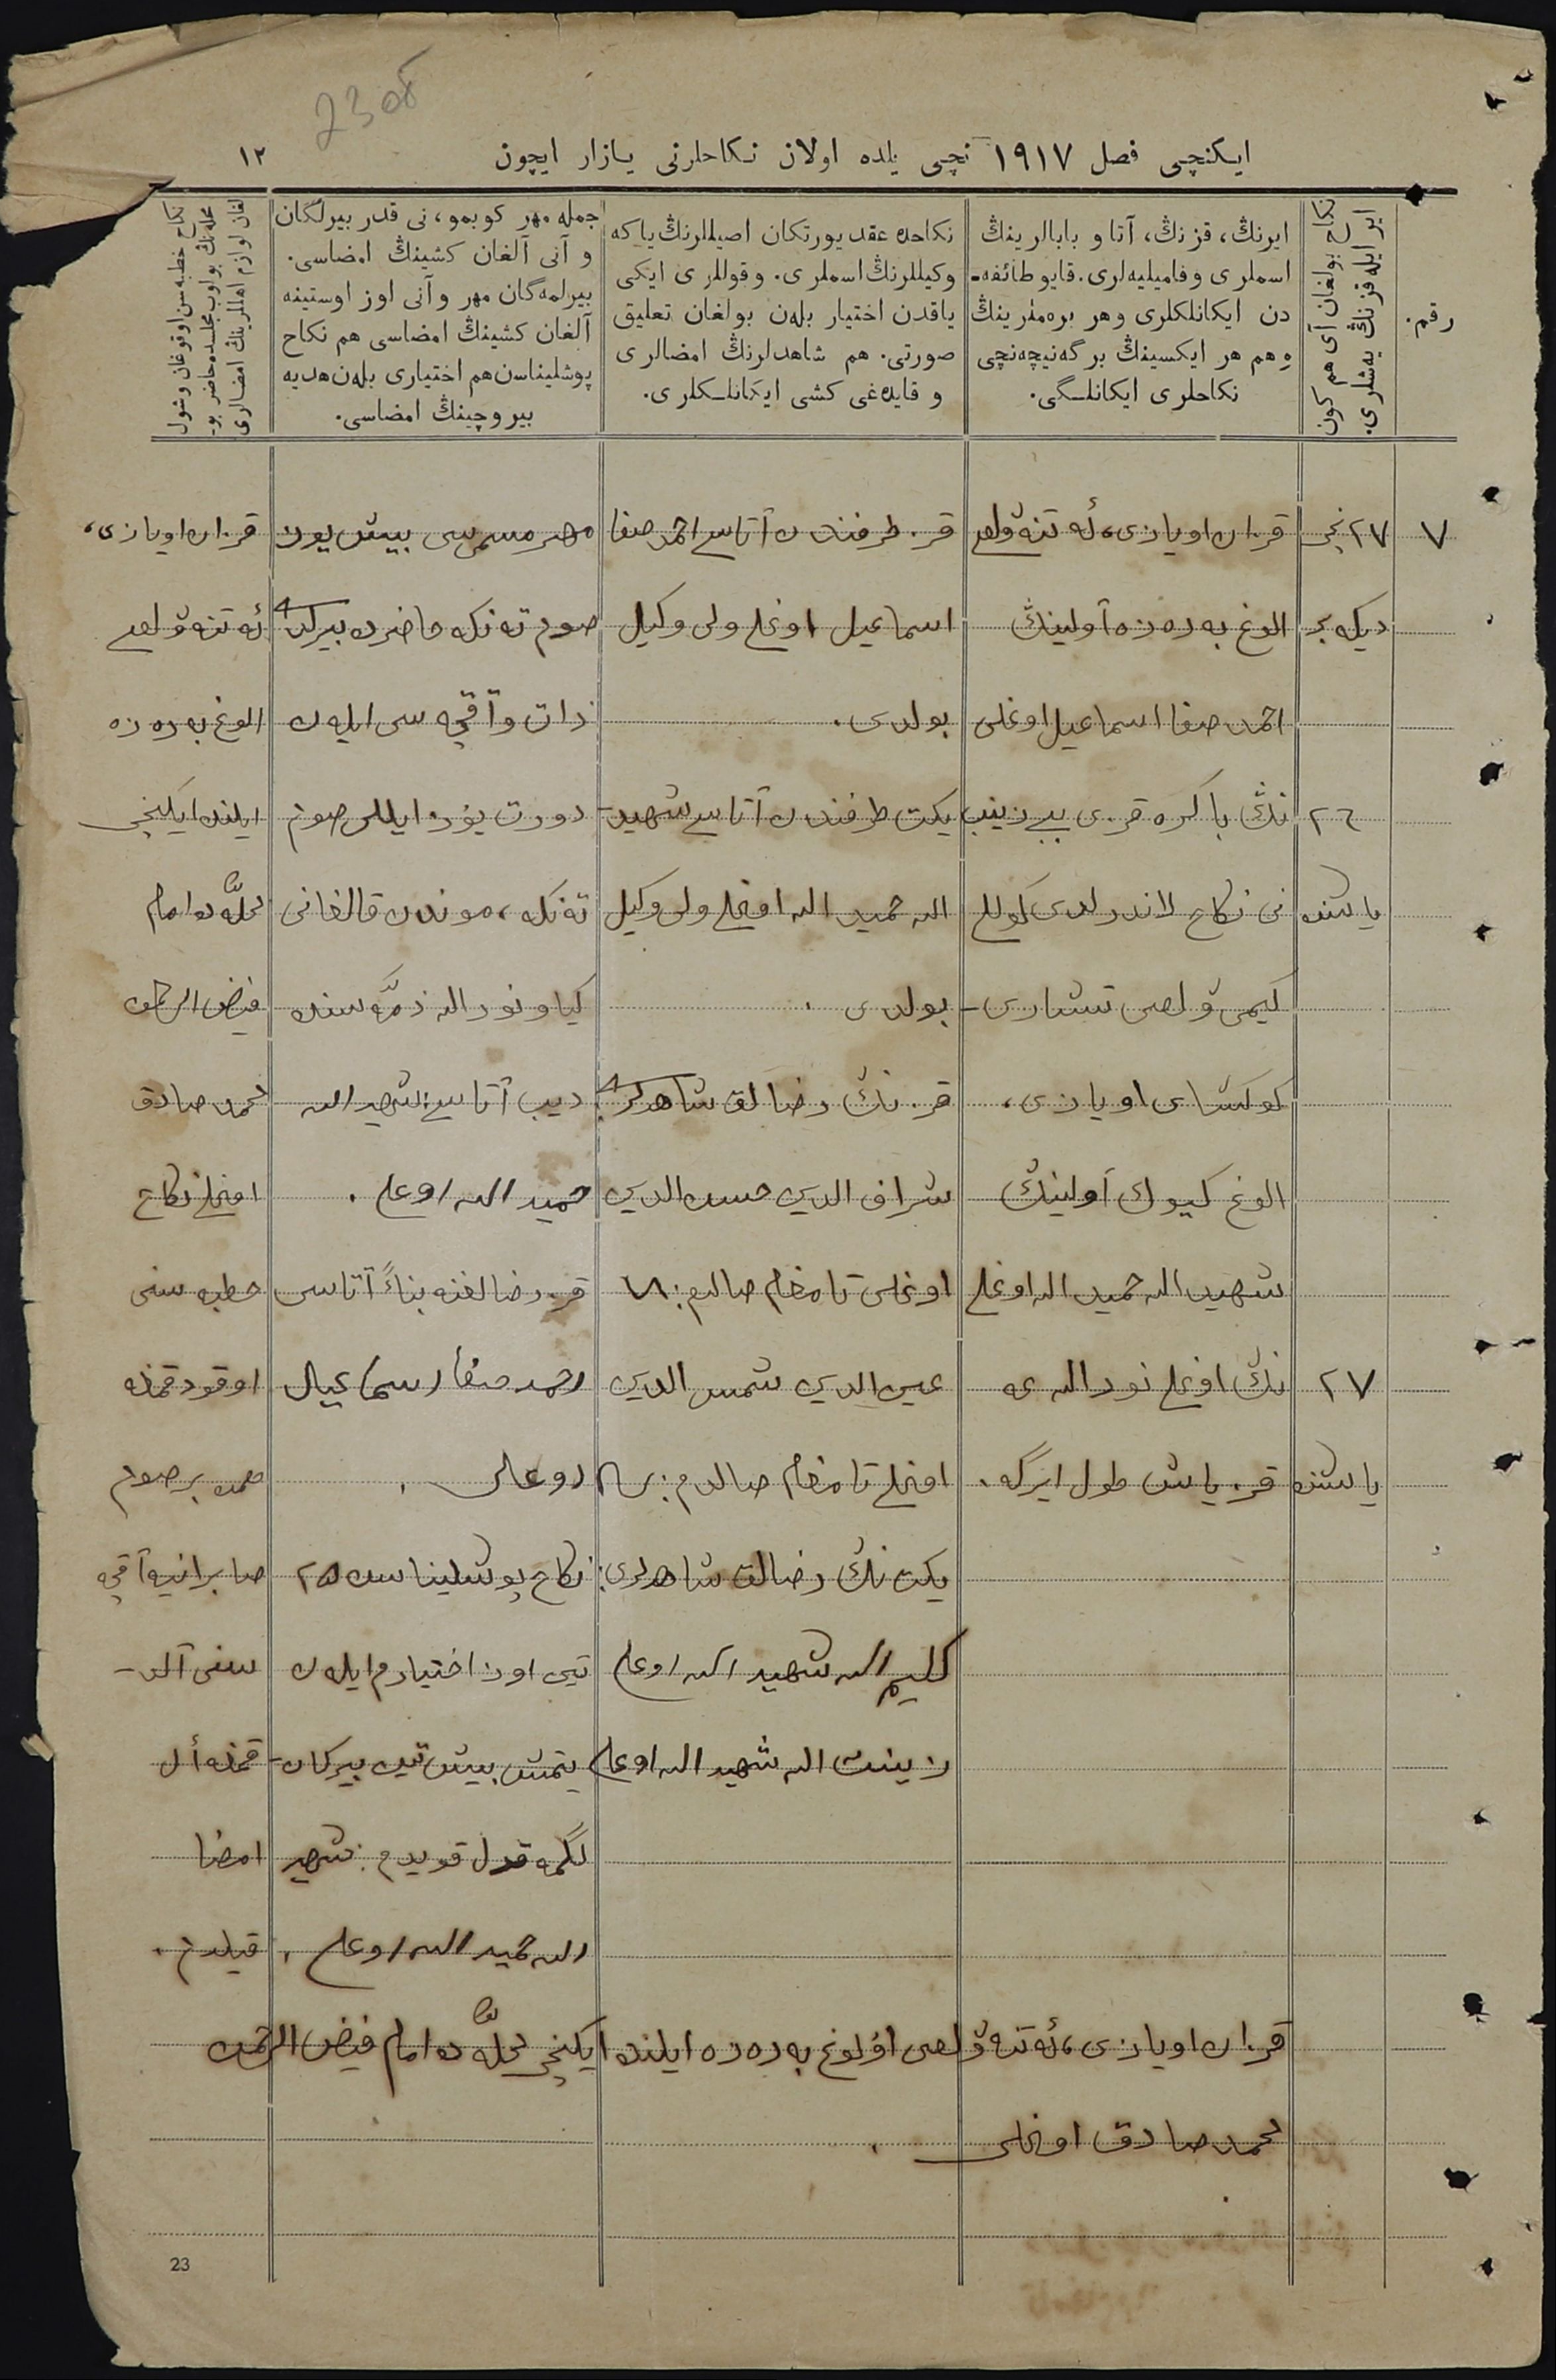 23 об
ایکنچی فصل ١٩١٧ نچی یلده اولان نکاحلرنی یازار ایچون
١٢
رقم.
نکاح بولغان آی هم کون
ایر ایله قزنڭ یەشلری.
ایرنڭ، قزنڭ، آتا و بابالرینڭ
اسملری و فامیلیه‌لری. قایو طائفه‌-
دن ایکانلکلری وهر بره‌ملرینڭ
وهم هر ایکسینڭ برگه‌نیچه‌نچی
نکاحلری ایکانلـگی.
نکاحده عقد یورتکان اصیللرنڭ یاکه
وکیللرنڭ اسملری. و قوللری ایکی
یاقدن اختیار بلەن بولغان تعلیق
صورتی. هم شاهدلرنڭ امضالری
و قایده‌غی کشی ایکانلـکلری.
جمله مهر کوبمو، نی قدر بیرلگان
و آنی آلغان کشینڭ امضاسی.
بیرلمه‌گان مهر و آنی اوز اوستینه
آلغان کشینڭ امضاسی هم نکاح
پوشلیناسن هم اختیاری بلەن هدیه
بیروچینڭ امضاسی.
نکاح خطبه‌سن اوقوغان وشول
محله‌نڭ بولوب مجلسده حاضر بو-
لغان لوازم اهللرینڭ امضالری
٧
٢٧ نچی
دیکەبر
٢٦
یاشنده
٢٧
یاشنده
قزان اویازی، ئه تنه ولصی
الوغ به‌ره‌زه آولینڭ
احمد صفا اسماعیل اوغلی
نڭ باکره قزی بی‌بی زینب
نی نکاح‌لاندرلدی
ولصی تتشاری-
اویازی،
الوغ آولینڭ
شهید الله حمید الله اوغلی
نڭ اوغلی نور الله عه
قز یاش طول ایرگه.
قز طرفندن آتاسی احمد صفا
اسماعیل اوغلی ولی وکیل
بولدی.
یکت طرفندن آتاسی شهید-
الله حمید الله اوغلی ولی وکیل
بولدی.
قزنڭ رضالق شاهدلری:
شراف الدین حسن الدین
اوغلی تامغام صالدم: ٧٨
عین الدین شمس الدین
اوغلی تامغام صالدم:
یکت نڭ رضالق شاهدلری:
کلیم الله شهید الله اوغلی
زینت الله شهید الله اوغلی
مهر مسمی‌سی بیش یوز
صوم تەنکه حاضرده بیرلگن
ذات و آقچه سی ایله‌ن
دورت یوز ایللی صوم
تەنکه، موندن قالغانی
کیاو نور الله ذمّه سنده
دیب آتاسی: شهید الله
حمید الله اوغلی.
قز رضالغنه بناءً آتاسی
احمد صفا اسماعیل
اوغلی.
نکاح پوشلیناسن ٢٥
تین اوز اختیارم ایله‌ن
یتمش بیش تین بیرگان-
لگمه قول قویدم: شهید
الله حمید الله اوغلی،
قزان اویازی،
ئه تنه ولصی
الوغ به‌ره‌زه
ایلنده ایکنچی
محلّه‌ده امام
فیض الرحمن
محمد صادق
اوغلی نکاح
خطبه سنی
اوقودقمده
همده بر صوم
صابرانیه آقچه
سنی آلد-
قمده أل
امضا
قیلدم.
قزان اویازی، ئه تنه ولصی اولوغ به‌ره‌زه ایلنده ایکنچی محلّه ده امام فیض الرحمن
محمد صادق اوغلی.
23